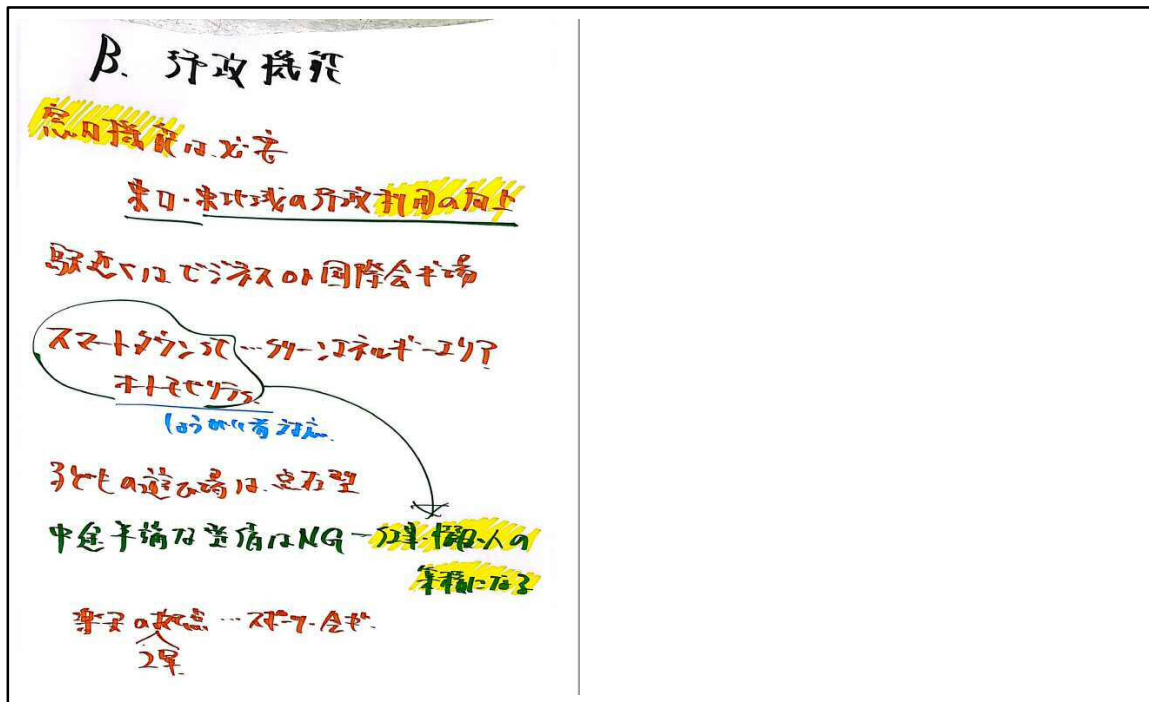 B. 行政機能
窓口機能は必要
東口・東地域の行政利用の向上
駅近くはビジネス or 国際会ギ場
スマートタウンって…クリーンエネルギーエリア
オートモビリティ
しょうがい者対応
子どもの遊び場は、点在型
中途半端な整備はNG－仕事・情報・人の
集積になる
楽天の拠点…スポーツ・会ギ
2軍